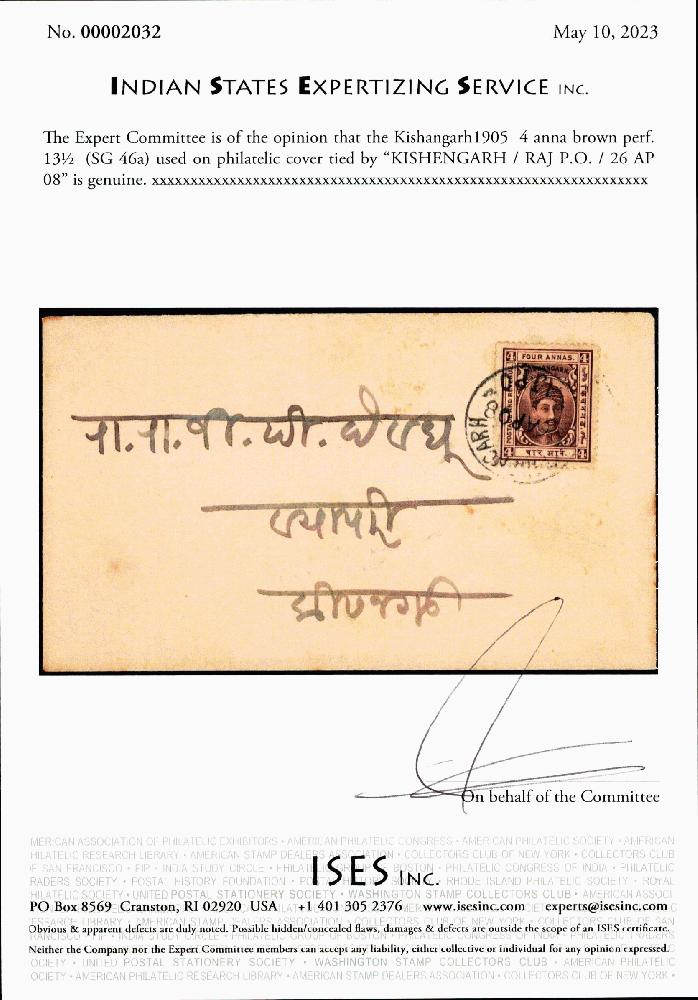 No. 00002032
May 10, 2023
INDIAN STATES EXPERTIZING SERVICE INC.
The Expert Committee is of the opinion that the Kishangarh1905 4 anna brown perf.
13½ (SG 46a) used on philatelic cover tied by “KISHENGARH / RAJ P.O. / 26 AP
08” is genuine. xxxxxxxxxxxxxxxxxxxxxxxxxxxxxxxxxxxxxxxxxxxxxxxxxxxxxxxxxxxxxxxx
4 FOUR ANNAS. 4
KISHANGARH
4 चार आने. 4
रा. रा. जी. पी.
व्यापारी
On behalf of the Committee
MERICAN ASSOCIATION OF PHILATELIC EXHIBITORS • AMERICAN PHILATELIC CONGRESS • AMERICAN PHILATELIC SOCIETY • AMERICAN
HILATELIC RESEARCH LIBRARY • AMERICAN STAMP DEALERS ASSOCIATION • COLLECTORS CLUB OF NEW YORK • COLLECTORS CLUB
F SAN FRANCISCO • FIP • INDIA STUDY CIRCLE • BOSTON • PHILATELIC CONGRESS OF INDIA • PHILATELIC
RADERS SOCIETY • POSTAL HISTORY FOUNDATION • RHODE ISLAND PHILATELIC SOCIETY • ROYAL
ISES INC.
HILATELIC SOCIETY • UNITED POSTAL STATIONERY SOCIETY • WASHINGTON STAMP COLLECTORS CLUB • AMERICAN ASSOCI
PO Box 8569 Cranston, RI 02920 USA +1 401 305 2376 www.isesinc.com experts@isesinc.com
ESEARCH LIBRARY • AMERICAN STAMP DEALERS ASSOCIATION • COLLECTORS CLUB OF NEW YORK • COLLECTORS CLUB OF SAN
Obvious & apparent defects are duly noted. Possible hidden/concealed flaws, damages & defects are outside the scope of an ISES certificate.
RANCISCO • FIP • INDIA STUDY CIRCLE • PHILATELIC GROUP OF BOSTON • PHILATELIC CONGRESS OF INDIA • PHILATELIC TRADERS
Neither the Company nor the Expert Committee members can accept any liability, either collective or individual for any opinion expressed.
OCIETY • UNITED POSTAL STATIONERY SOCIETY • WASHINGTON STAMP COLLECTORS CLUB • AMERICAN PHILATELIC
OCIETY • AMERICAN PHILATELIC RESEARCH LIBRARY • AMERICAN STAMP DEALERS ASSOCIATION • COLLECTORS CLUB OF NEW YORK •